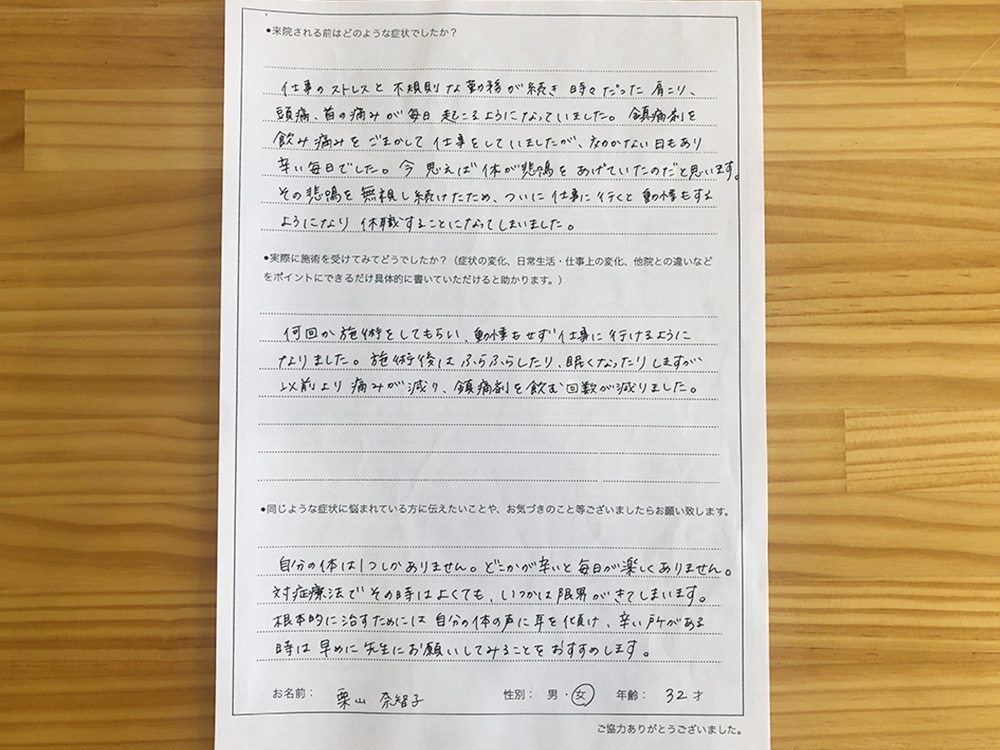 ●来院される前はどのような症状でしたか？
仕事のストレスと不規則な勤務が続き時々だった肩こり、
頭痛、首の痛みが毎日起こるようになっていました。鎮痛剤を
飲み痛みをごまかして仕事をしていましたが、なかない日もあり
辛い毎日でした。今思えば体が悲鳴をあげていたのだと思います。
その悲鳴を無視し続けたため、ついに仕事に行くと動悸もする
ようになり休職することになってしまいました。
●実際に施術を受けてみてどうでしたか？（症状の変化、日常生活・仕事上の変化、他院との違いなど
をポイントにできるだけ具体的に書いていただけると助かります。）
何回か施術をしてもらい、動悸もせず仕事に行けるように
なりました。施術後はふらふらしたり、眠くなったりしますが
以前より痛みが減り、鎮痛剤を飲む回数が減りました。
●同じような症状に悩まれている方に伝えたいことや、お気づきのこと等ございましたらお願い致します。
自分の体は1つしかありません。どこかが辛いと毎日が楽しくありません。
対症療法でその時はよくても、いつかは限界がきてしまいます。
根本的に治すためには自分の体の声に耳を傾け、辛い所がある
時は早めに先生にお願いしてみることをおすすめします。
お名前： 栗山 奈智子 性別： 男・女 年齢： 32才
ご協力ありがとうございました。